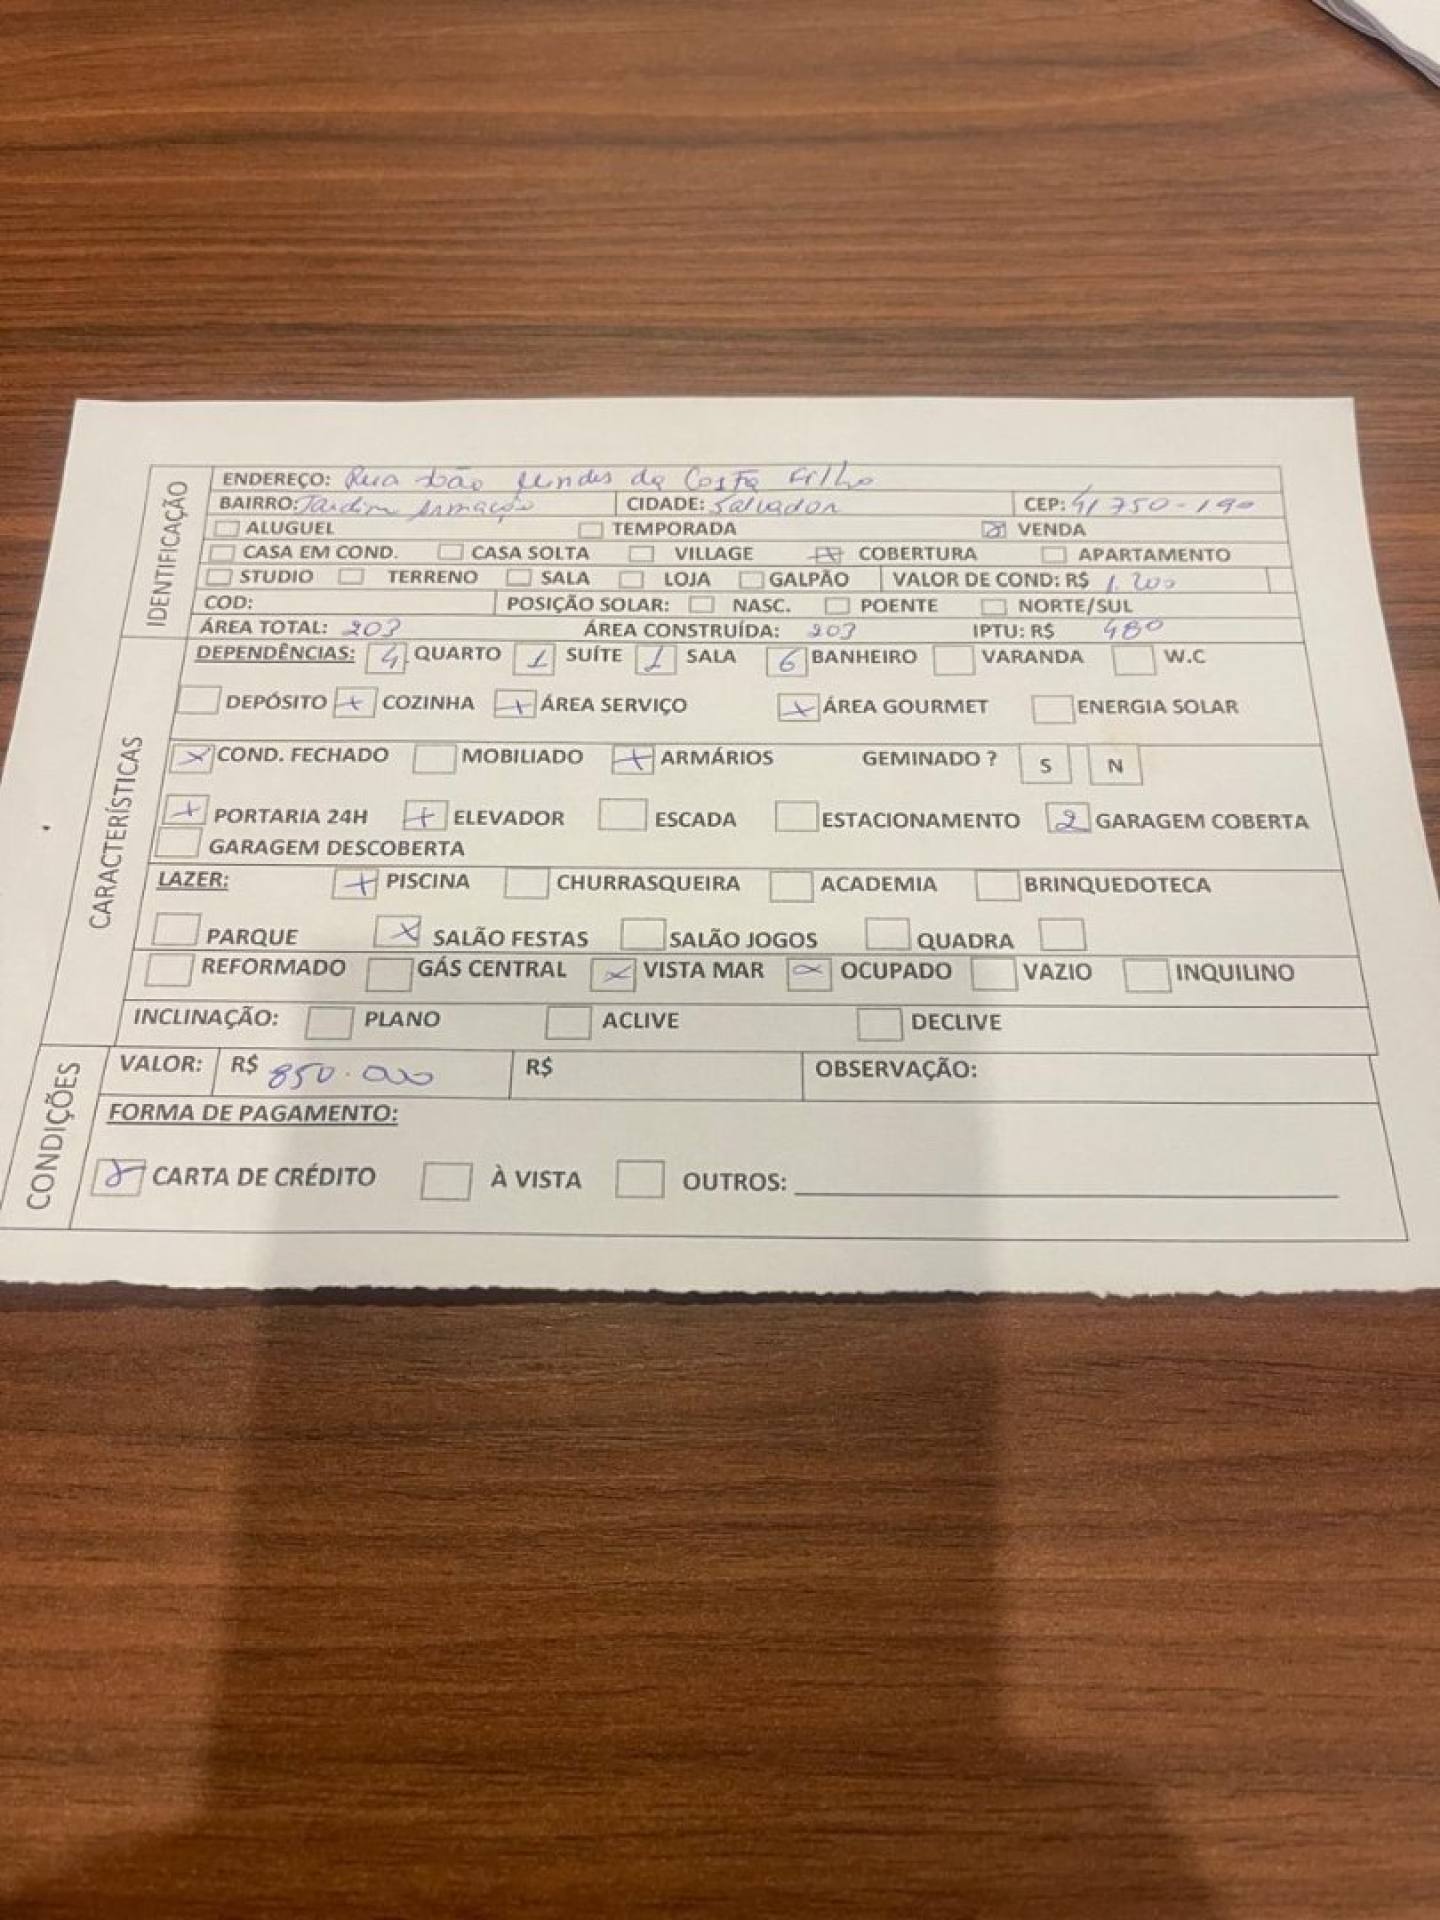 IDENTIFICAÇÃO
ENDEREÇO: Rua João Mendes da Costa Filho
BAIRRO: Jardim Armação CIDADE: Salvador CEP: 41 750-190
ALUGUEL TEMPORADA VENDA
CASA EM COND. CASA SOLTA VILLAGE COBERTURA APARTAMENTO
STUDIO TERRENO SALA LOJA GALPÃO VALOR DE COND: R$ 1.200
COD: POSIÇÃO SOLAR: NASC. POENTE NORTE/SUL
ÁREA TOTAL: 203 ÁREA CONSTRUÍDA: 203 IPTU: R$ 480
CARACTERÍSTICAS
DEPENDÊNCIAS: 4 QUARTO 1 SUÍTE 1 SALA 6 BANHEIRO VARANDA W.C
DEPÓSITO COZINHA ÁREA SERVIÇO ÁREA GOURMET ENERGIA SOLAR
COND. FECHADO MOBILIADO ARMÁRIOS GEMINADO ? S N
PORTARIA 24H ELEVADOR ESCADA ESTACIONAMENTO 2 GARAGEM COBERTA
GARAGEM DESCOBERTA
LAZER: PISCINA CHURRASQUEIRA ACADEMIA BRINQUEDOTECA
PARQUE SALÃO FESTAS SALÃO JOGOS QUADRA
REFORMADO GÁS CENTRAL VISTA MAR OCUPADO VAZIO INQUILINO
INCLINAÇÃO: PLANO ACLIVE DECLIVE
CONDIÇÕES
VALOR: R$ 850.000 R$ OBSERVAÇÃO:
FORMA DE PAGAMENTO:
CARTA DE CRÉDITO À VISTA OUTROS: